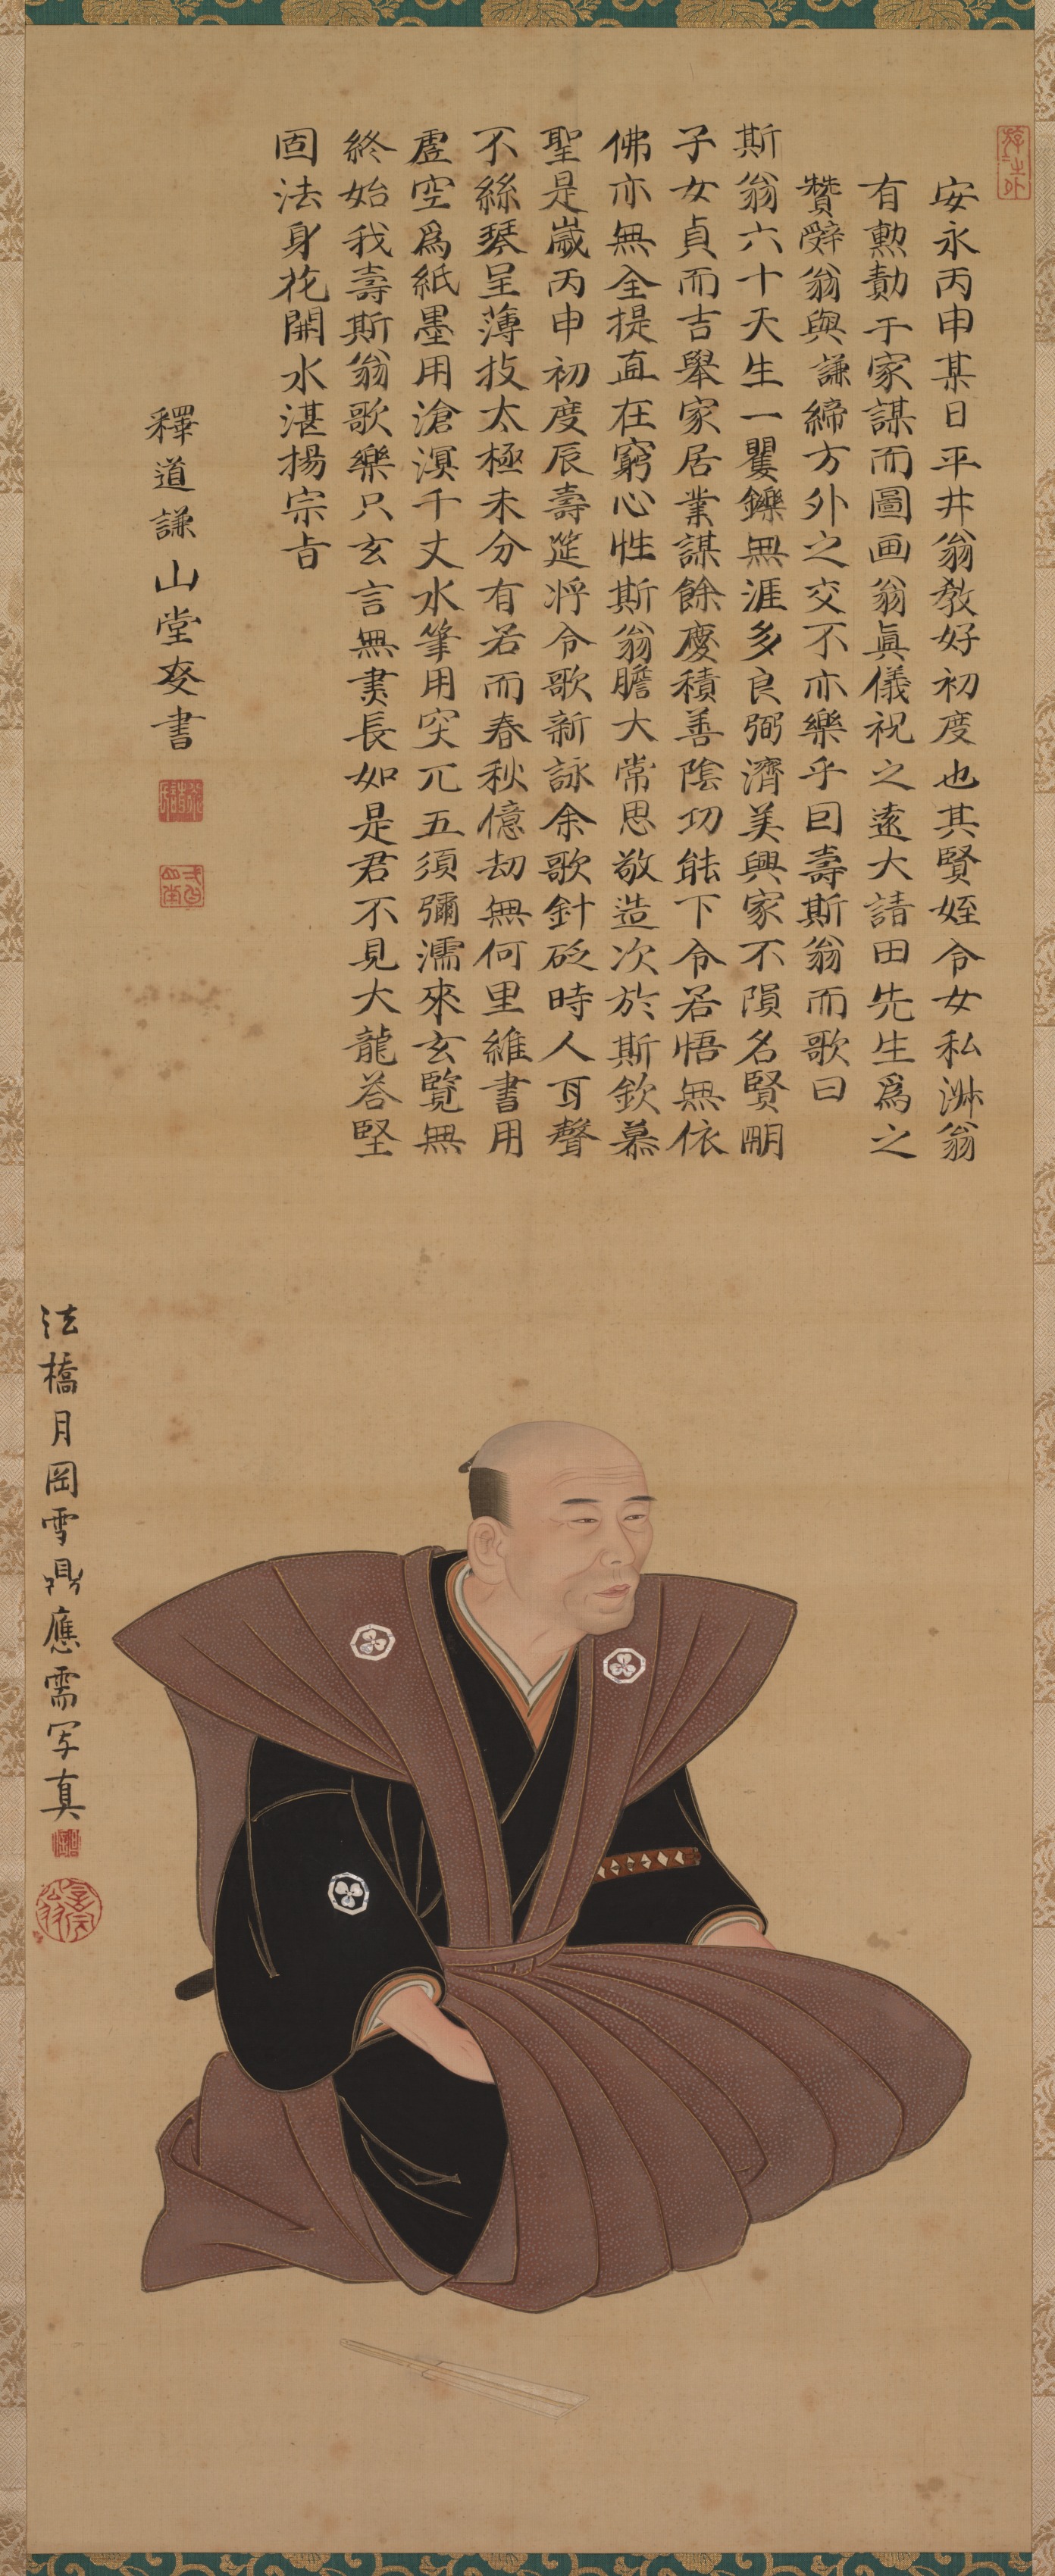 安永丙申某日平井翁教好初度也其賢姪令女私淋翁
有勲勣于家謀而圖画翁眞儀祝之遠大請田先生爲之
贊辭翁與謙締方外之交不亦樂乎囙壽斯翁而歌曰
斯翁六十天生一矍鑠無涯多良弼濟美興家不隕名賢朙
子女貞而吉舉家居業謀餘慶積善陰功能下令若悟無依
佛亦無全提直在窮心性斯翁膽大常思敬造次於斯欽慕
聖是嵗丙申初度辰壽筵将令歌新詠余歌針砭時人耳聲
不絲琴呈薄技太極未分有若而春秋億劫無何里維書用
虛空爲紙墨用滄溟千丈水筆用突兀五須彌濡來玄覽無
終始我壽斯翁歌樂只玄言無盡長如是君不見大龍荅堅
固法身花開水湛揚宗旨
釋道謙山堂書
法橋月岡雪鼎應需写真